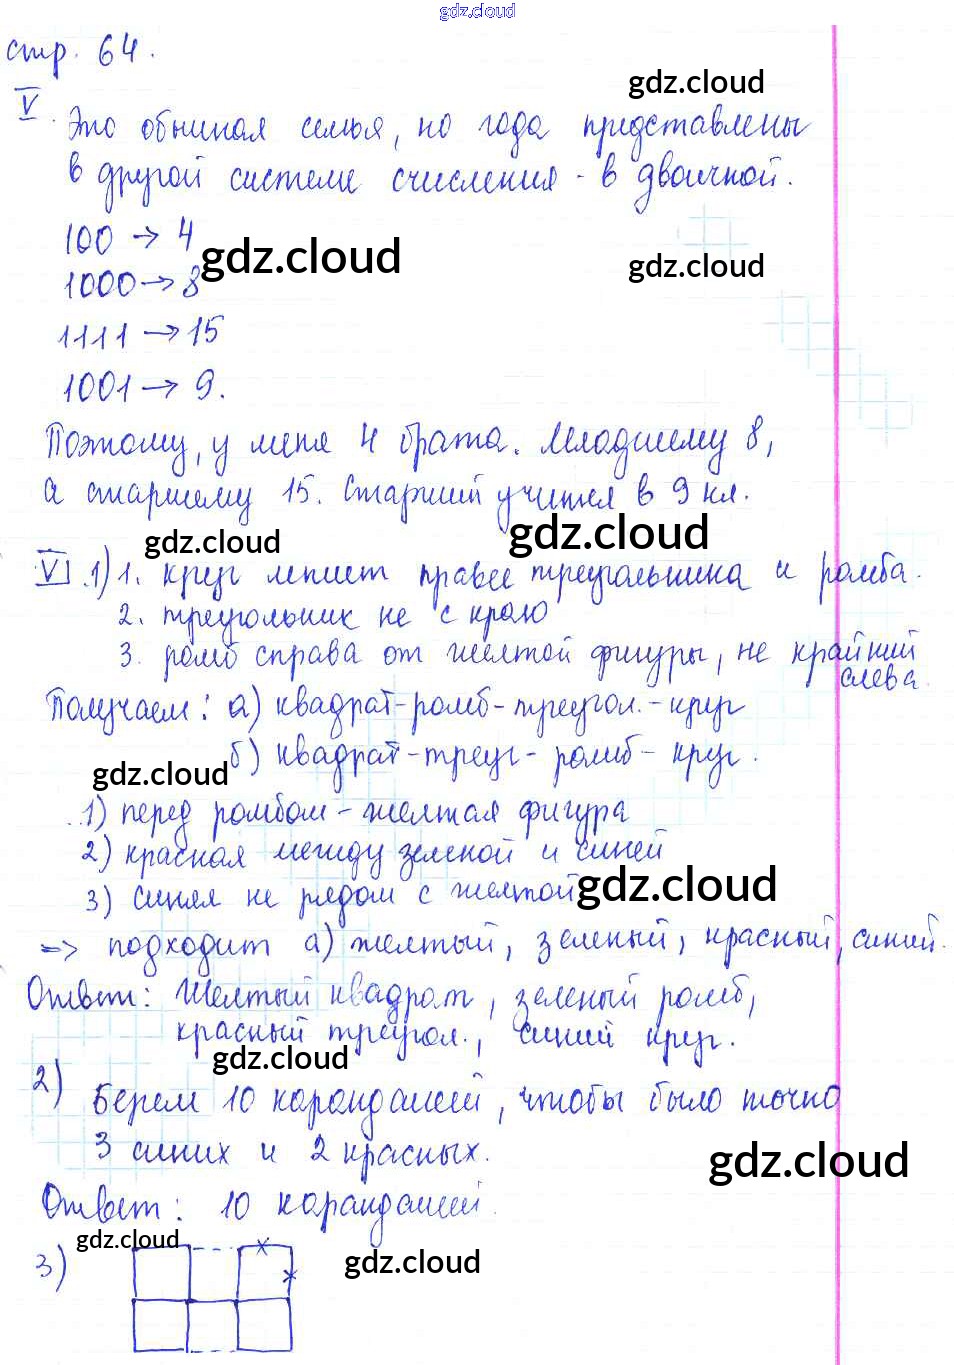 gdz.cloud
стр. 64.
gdz.cloud
V. Это обычная семья, но года представлены
в другой системе счисления - в двоичной.
100 → 4
gdz.cloud
gdz.cloud
1000 → 8
1111 → 15
1001 → 9.
Поэтому, у меня 4 брата. Младшему 8,
а старшему 15. Старший учится в 9 кл.
gdz.cloud
gdz.cloud
VI. 1) 1. круг лежит правее треугольника и ромба.
2. треугольник не с краю
3. ромб справа от желтой фигуры, не крайний
слева.
Получаем: а) квадрат-ромб-треугол.-круг
б) квадрат-треуг-ромб-круг.
gdz.cloud
1) перед ромбом - желтая фигура
2) красная между зеленой и синей
3) синяя не рядом с желтой
gdz.cloud
=> подходит а) желтый, зеленый, красный, синий.
Ответ: Желтый квадрат, зеленый ромб,
красный треугол., синий круг.
gdz.cloud
2) Берем 10 карандашей, чтобы было точно
3 синих и 2 красных.
gdz.cloud
Ответ: 10 карандашей.
gdz.cloud
3)
gdz.cloud